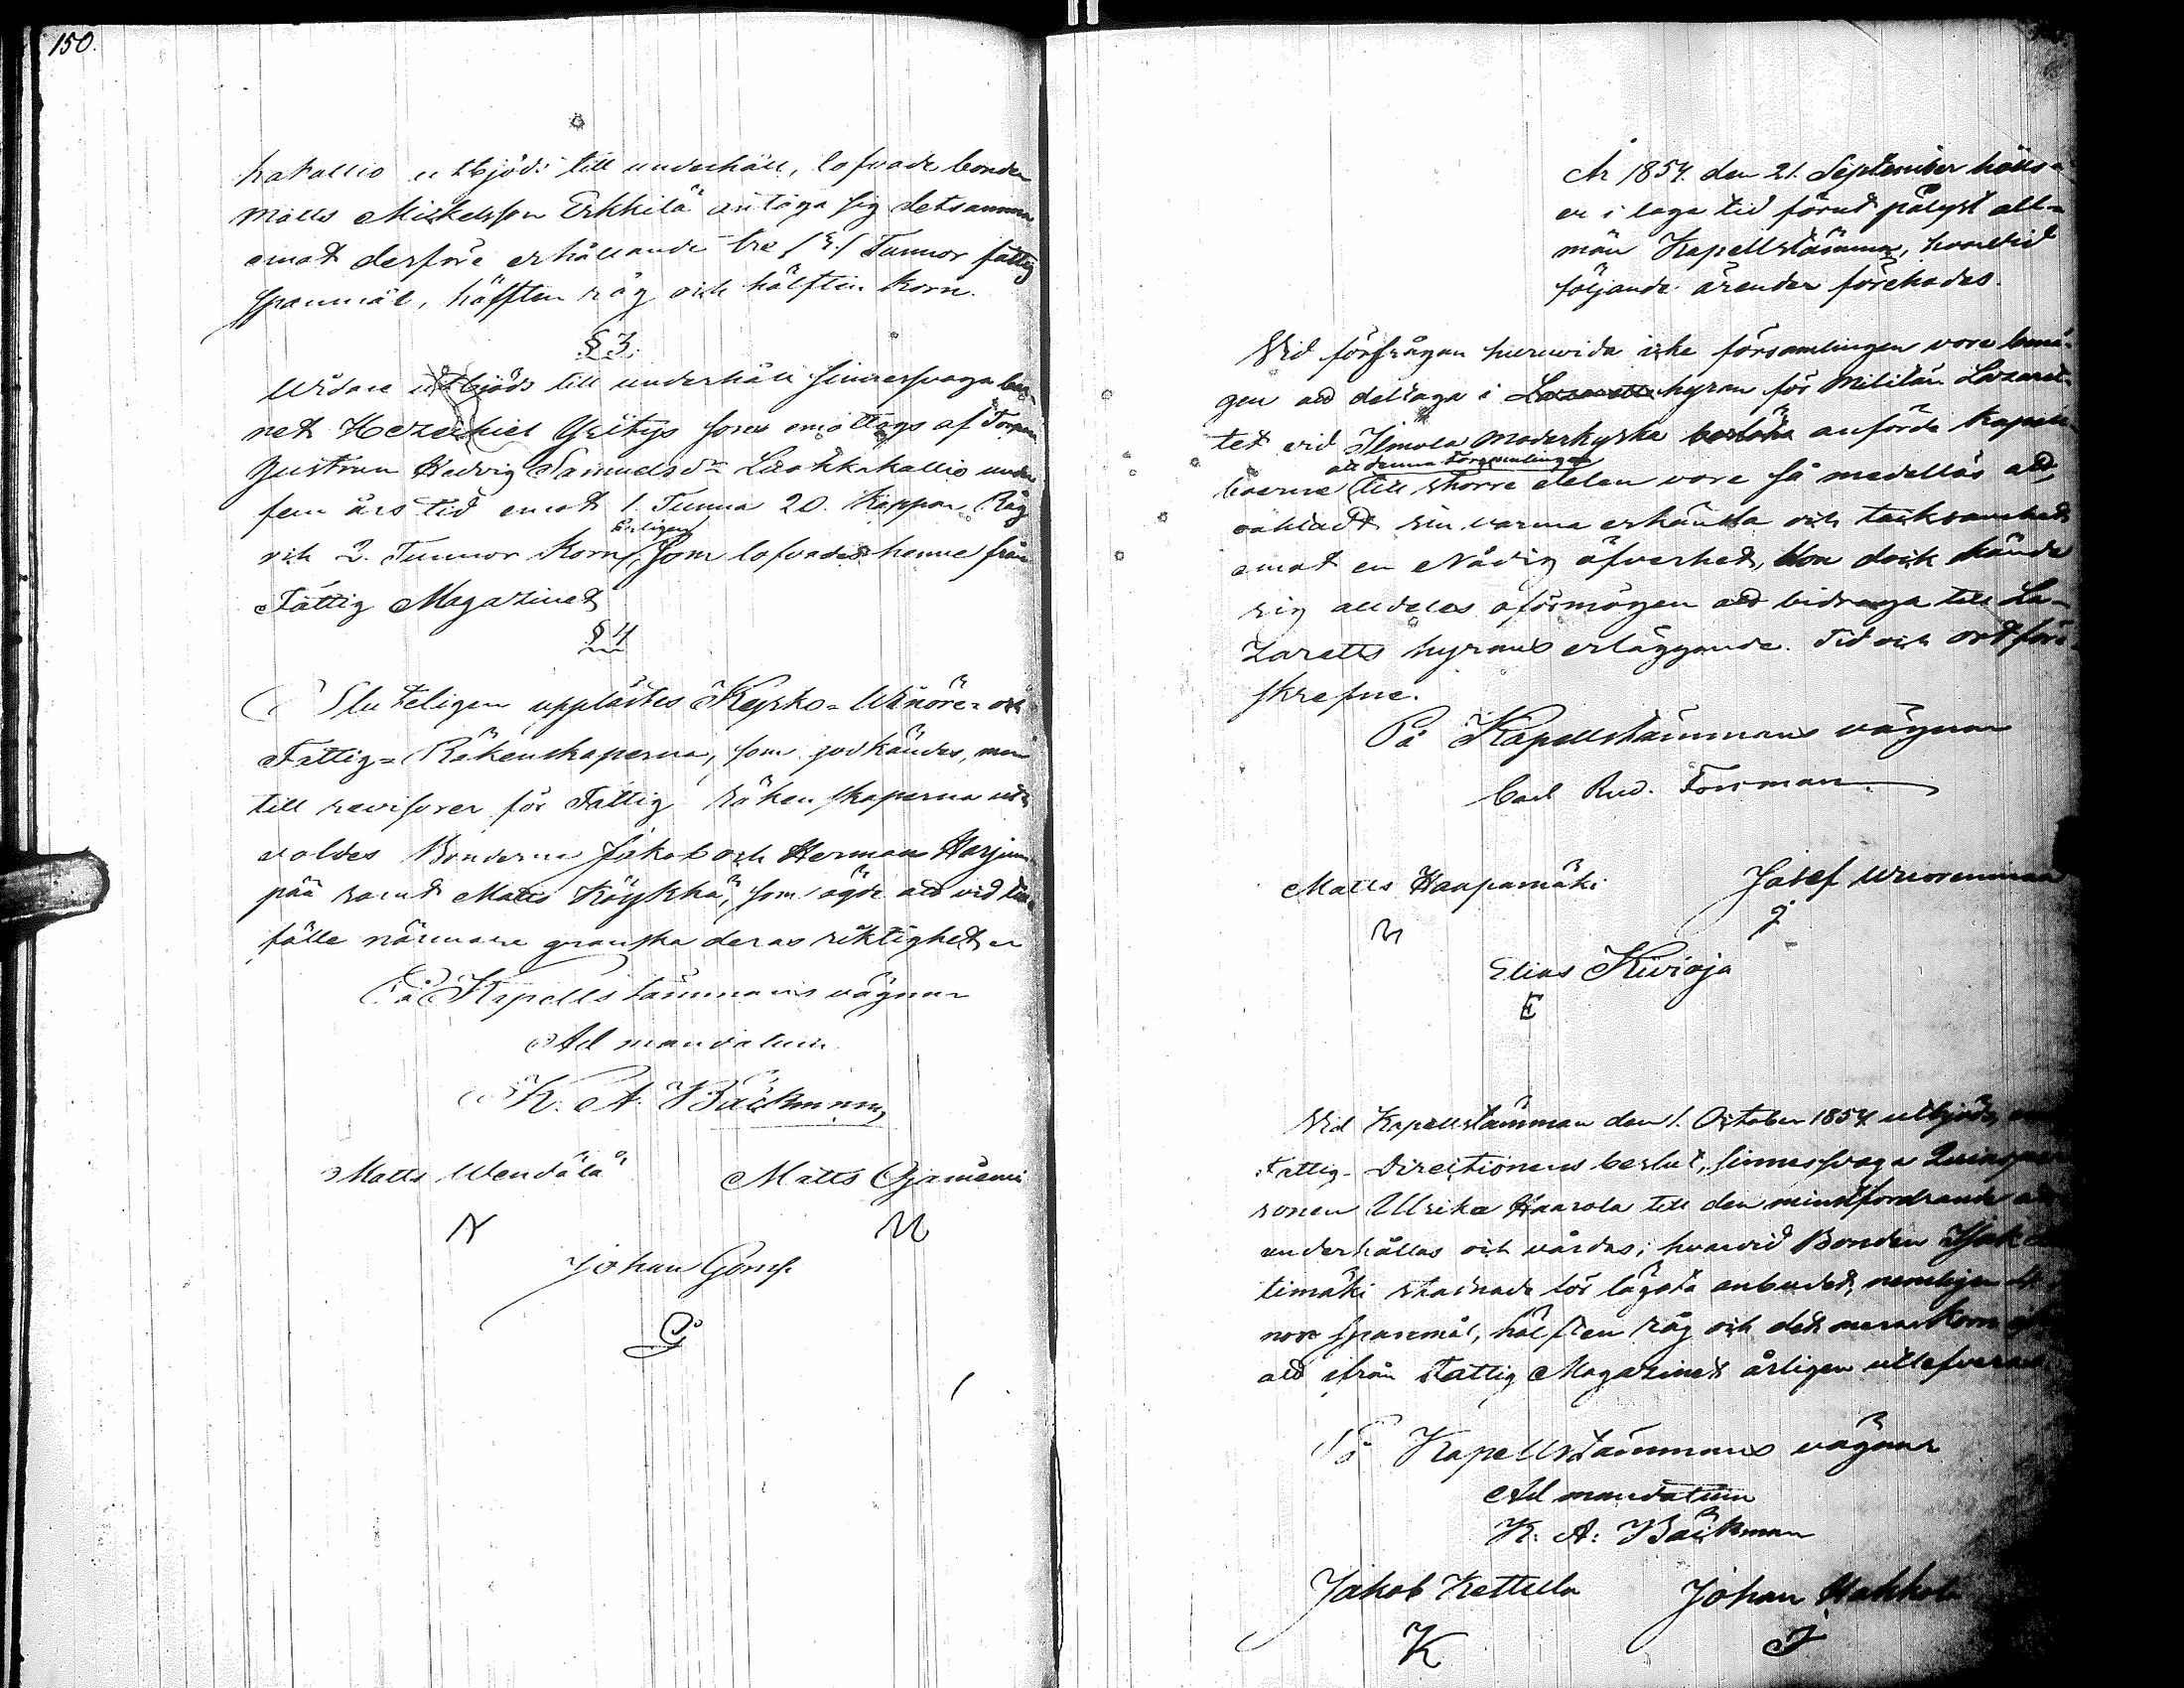 150.
kakallio utbjöds till underhåll, lofvade bonden
Matts Mickelsson Erkkilä antaga sig detsamma
emot derföre erhållande tre /3/ Tunnor fattig
spannmål, hälften råg och hälften Korn.
§ 3.
Widare utbjöds till underhåll sinnessvaga bar-
net Hezekiel Yritys som emottogs af Torpare
Hustrun Hedvig Samuelsdr under
fem års tid emot 1. Tunna 20. Kappar Råg
årligen
och 2. Tunnor Korn, som lofvades henne från
Fattig Magazinet
§ 4
Sluteligen upplästes Kyrko- och
Fattig-Räkenskaperna, som godkändes, men
till revisorer för Fattig räkenskaperna ut-
valdes Bönderna Jakob och Herman Harjun-
pää samt Matts Köykkä, som ägde att vid till-
fälle närmare granska deras riktighet
På Kapellstämmans vägnar
Ad mandatum
K. A. Bäckman
Matts Wendälä Matts Ojaniemi
M
Johan Gömf
G
År 1854 den 21. September hölls
en i laga tid förut pålyst all-
män Kapellstämma, hvarvid
följande ärender förehades.
Vid förfrågan huruvida icke församlingen vore benä-
gen att deltaga i hyran för Militär Lazaret-
tet vid Ilmola Moderkyrka anförde Kapell-
att denna Församlingen
boerne till större delen vore så medellös att,
oaktadt sin varma erkänsla och tacksamhet
emot en Nådig öfverhet, hon dock kände
sig alldeles oförmögen att bidraga till La-
zaretts hyrans erläggande. Tid och ort för-
skrefne.
På Kapellstämmans vägnar
Carl Rud. Forsman
Matts Haapamäki Josef Wuorenmaa
M J
Elias Kivioja
E
Vid Kapellstämman den 1. October 1854 utbjöds,
Fattig-Directionens beslut, sinnessvaga Qvinsper-
sonen Ulrika Haarola till den minstfordrande att
underhållas och vårdas; hvarvid Bonden Isak
timäki stadnade för lägsta anbudet, nemligen
nor spanmål, hälften råg och det mera Korn
att ifrån Fattig Magazinet årligen utlefveras.
På Kapellstämmans vägnar
Ad mandatum
K. A. Bäckman
Jakob Kettula Johan Hakkola
K J